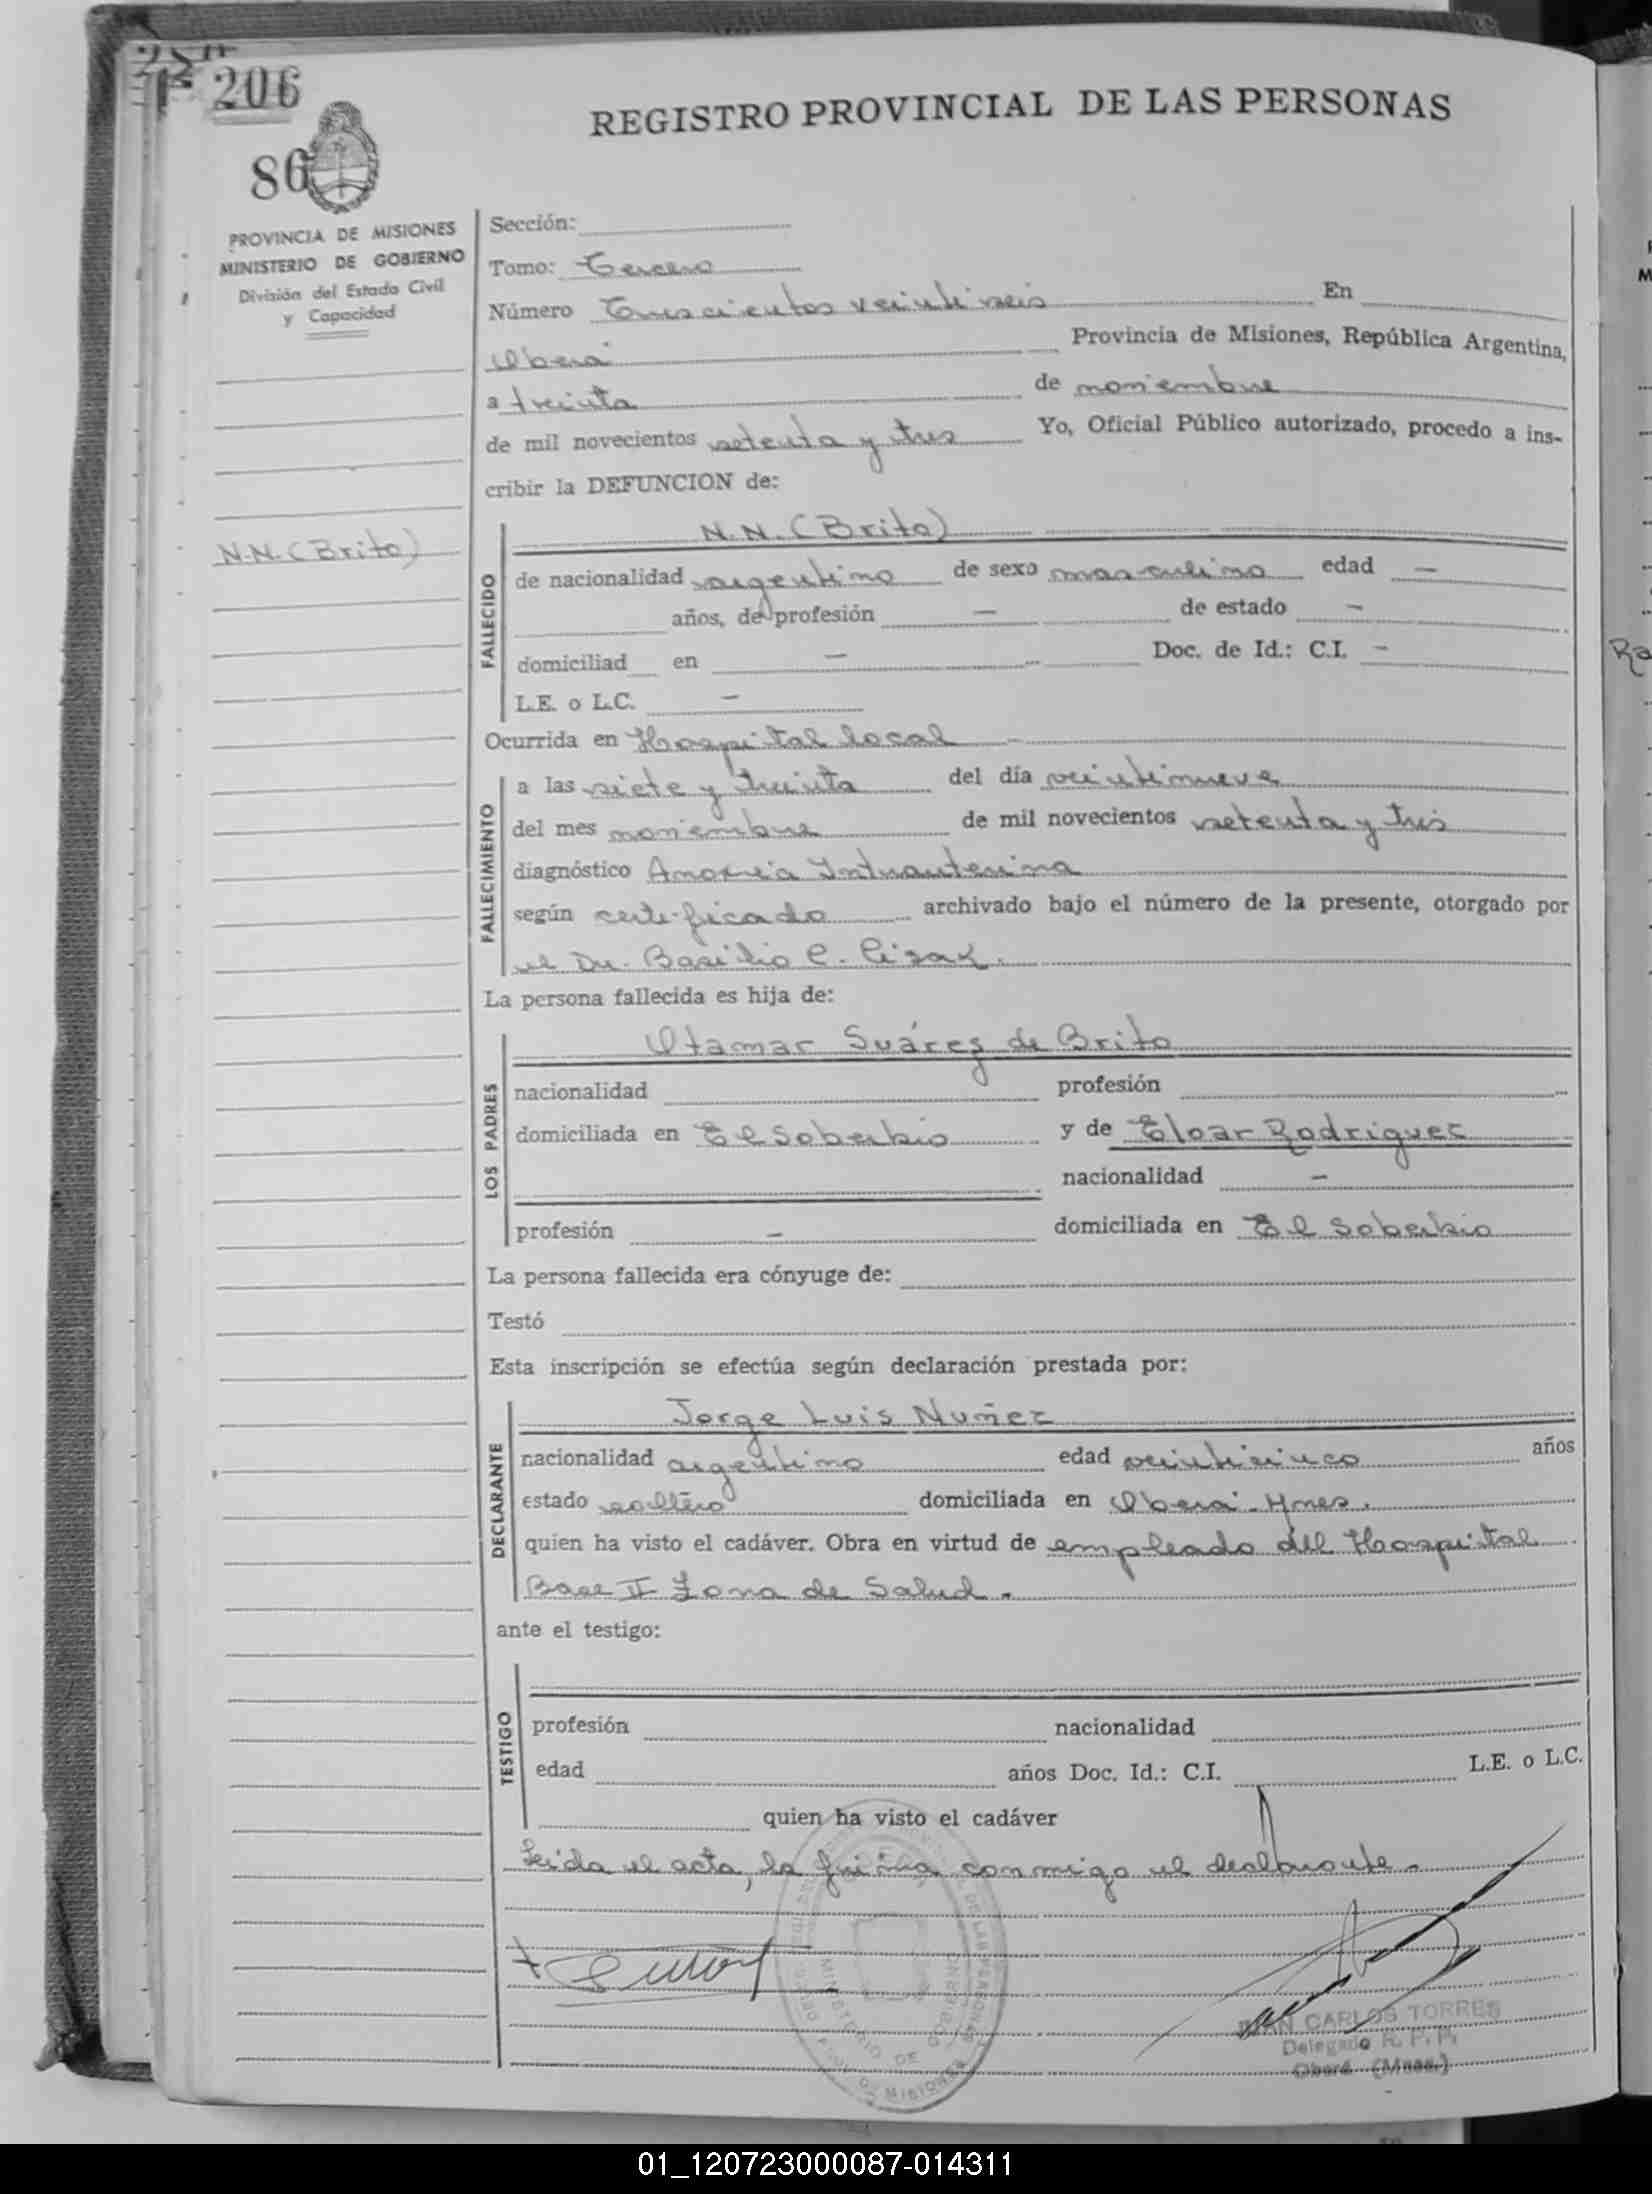 206
86
REGISTRO PROVINCIAL DE LAS PERSONAS
PROVINCIA DE MISIONES
MINISTERIO DE GOBIERNO
División del Estado Civil
y Capacidad
Sección:
Tomo: Tercero
Número Trescientos veintiseis En
Oberá Provincia de Misiones, República Argentina,
a treinta de noviembre
de mil novecientos setenta y tres Yo, Oficial Público autorizado, procedo a ins-
cribir la DEFUNCION de:
N.N. (Brito)
N.N. (Brito)
FALLECIDO
de nacionalidad argentino de sexo masculino edad —
años, de profesión — de estado —
domiciliad en — Doc. de Id.: C.I. —
L.E. o L.C. —
Ocurrida en Hospital local
FALLECIMIENTO
a las siete y treinta del día veintinueve
del mes noviembre de mil novecientos setenta y tres
diagnóstico Anoxia Intrauterina
según certificado archivado bajo el número de la presente, otorgado por
el Dr. Basilio C.
La persona fallecida es hija de:
LOS PADRES
Otamar Suárez de Brito
nacionalidad profesión
domiciliada en El Soberbio y de Eloar Rodriguez
nacionalidad —
profesión — domiciliada en El Soberbio
La persona fallecida era cónyuge de:
Testó
Esta inscripción se efectúa según declaración prestada por:
DECLARANTE
Jorge Luis Nuñez
nacionalidad argentino edad veinticinco años
estado soltero domiciliada en Oberá - Mnes.
quien ha visto el cadáver. Obra en virtud de empleado del Hospital
Base II Zona de Salud.
ante el testigo:
TESTIGO
profesión nacionalidad
edad años Doc. Id.: C.I. L.E. o L.C.
quien ha visto el cadáver
Leida el acta, la firma conmigo el declarante.
MINISTERIO DE GOBIERNO
DE LAS PERSONAS
MISIONES
JUAN CARLOS TORRES
Delegado R. P. P.
Oberá (Mnes.)
01_120723000087-014311